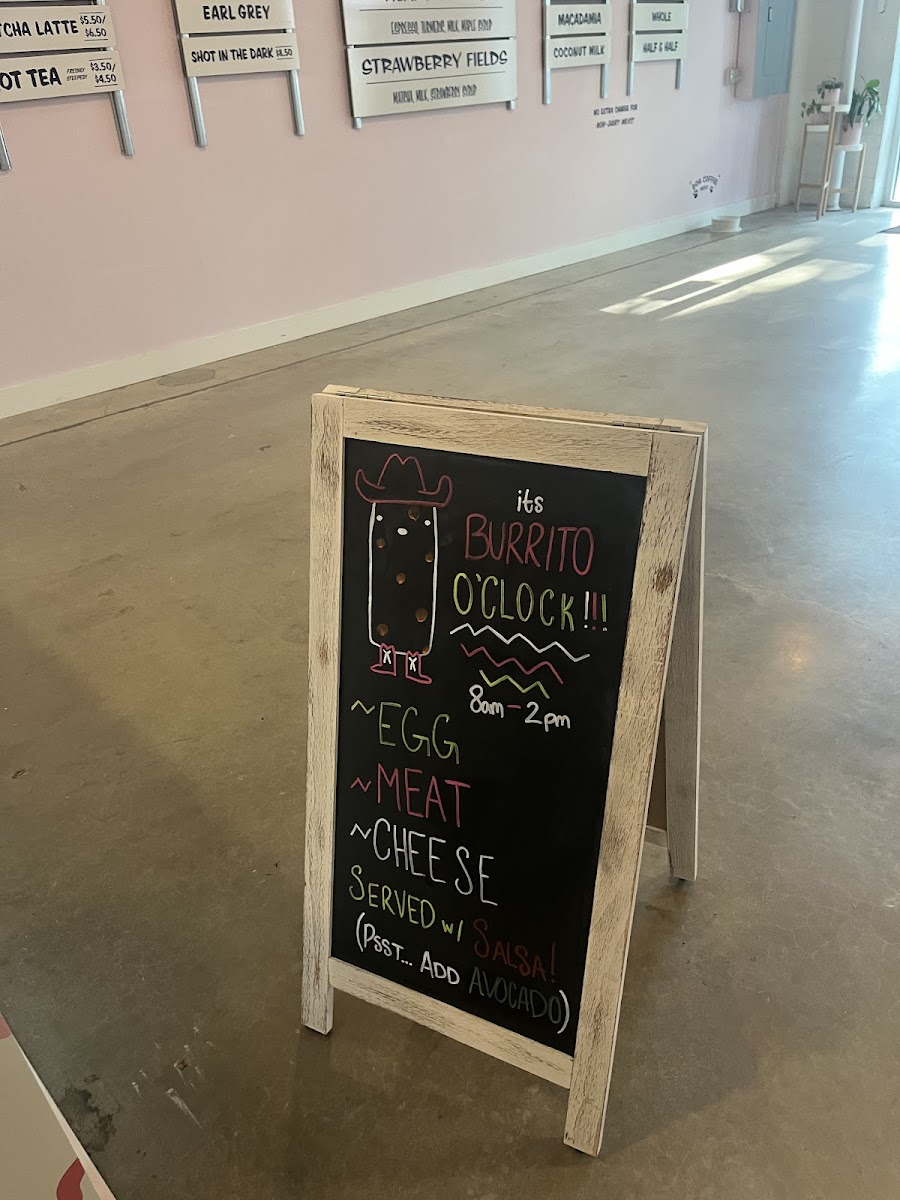 TCHA LATTE $5.50/
$6.50
OT TEA FRESHLY STEEPED! $3.50/
$4.50
EARL GREY
SHOT IN THE DARK $8.50
ESPRESSO, TURMERIC, MILK, MAPLE SYRUP
STRAWBERRY FIELDS
MATCHA, MILK, STRAWBERRY SYRUP
MACADAMIA
COCONUT MILK
WHOLE
HALF & HALF
NO EXTRA CHARGE FOR
NON-DAIRY MILKS!
its
BURRITO
O'CLOCK!!!
8am-2pm
~EGG
~MEAT
~CHEESE
SERVED w/ SALSA!
(PSST... ADD AVOCADO)